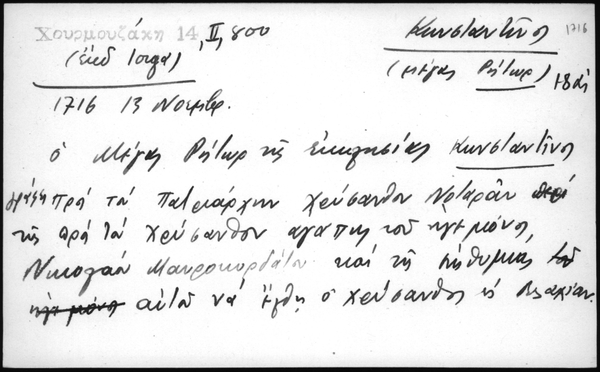 Χουρμουζάκη 14, II, 800
Κωνσταντῖνος
1716
(ἐκδ Ἰόργα)
(μέγας Ρήτωρ)
18ος
1716 13 Νοεμβρ.
ὁ Μέγας Ρήτωρ τῆς ἐκκλησίας Κωνσταντῖνος
γράφει πρὸ τὸ Πατριάρχην Χρύσανθον Νοταρᾶν περὶ
τῆς πρὸ τὸ Χρύσανθον ἀγάπης τοῦ ἡγεμόνος
Νικολάου Μαυροκορδάτου καὶ τῆς ἐπιθυμίας τοῦ
ἡγεμόνος αὐτοῦ νὰ ἔλθῃ ὁ Χρύσανθος εἰς Βλαχίαν.